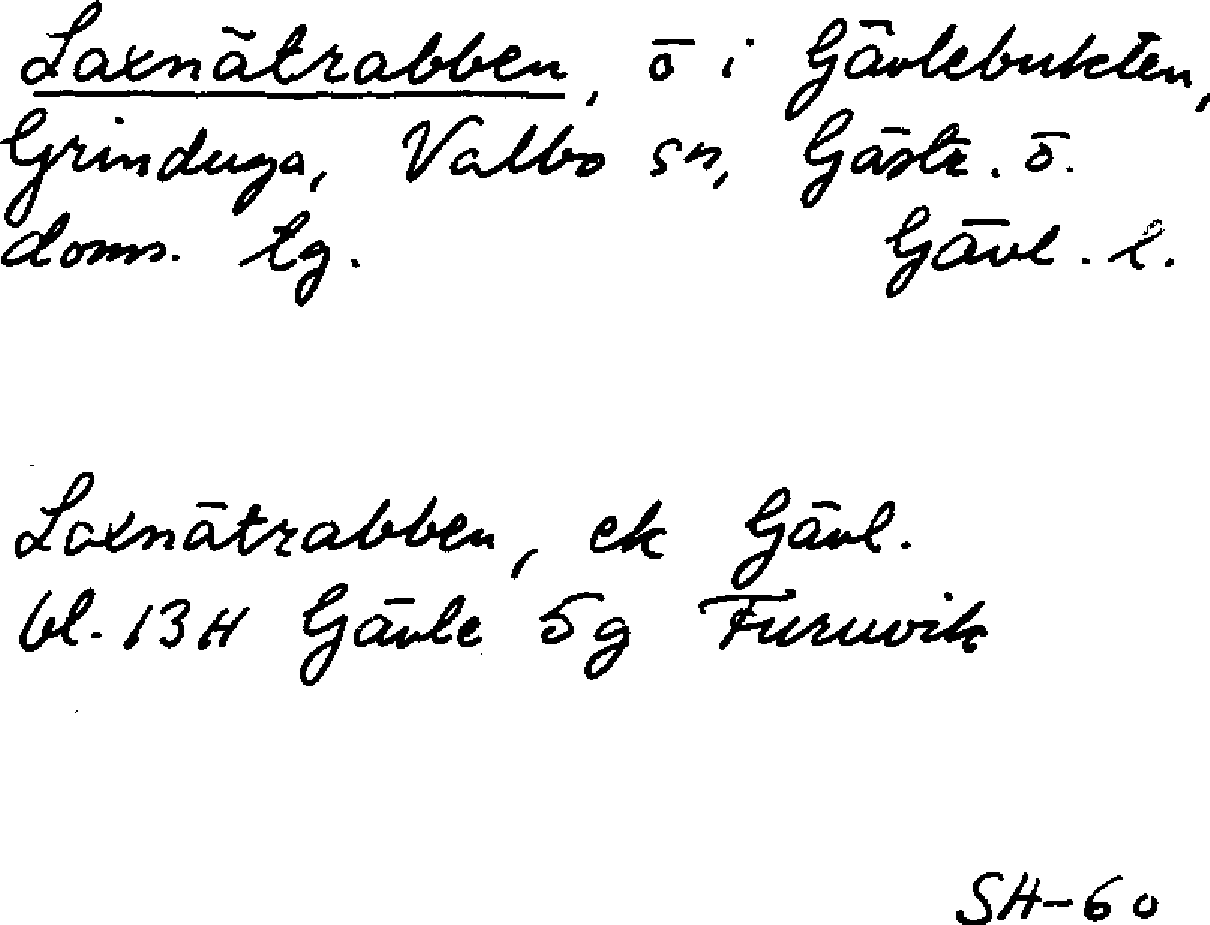 Laxnätrabben, ö i Gävlebukten,
Grinduga, Valbo sn, Gästr. ö.
doms. tg. Gävl. l.
Laxnätrabben, ek Gävl.
bl. 13H Gävle 5g Furuvik
SH-60